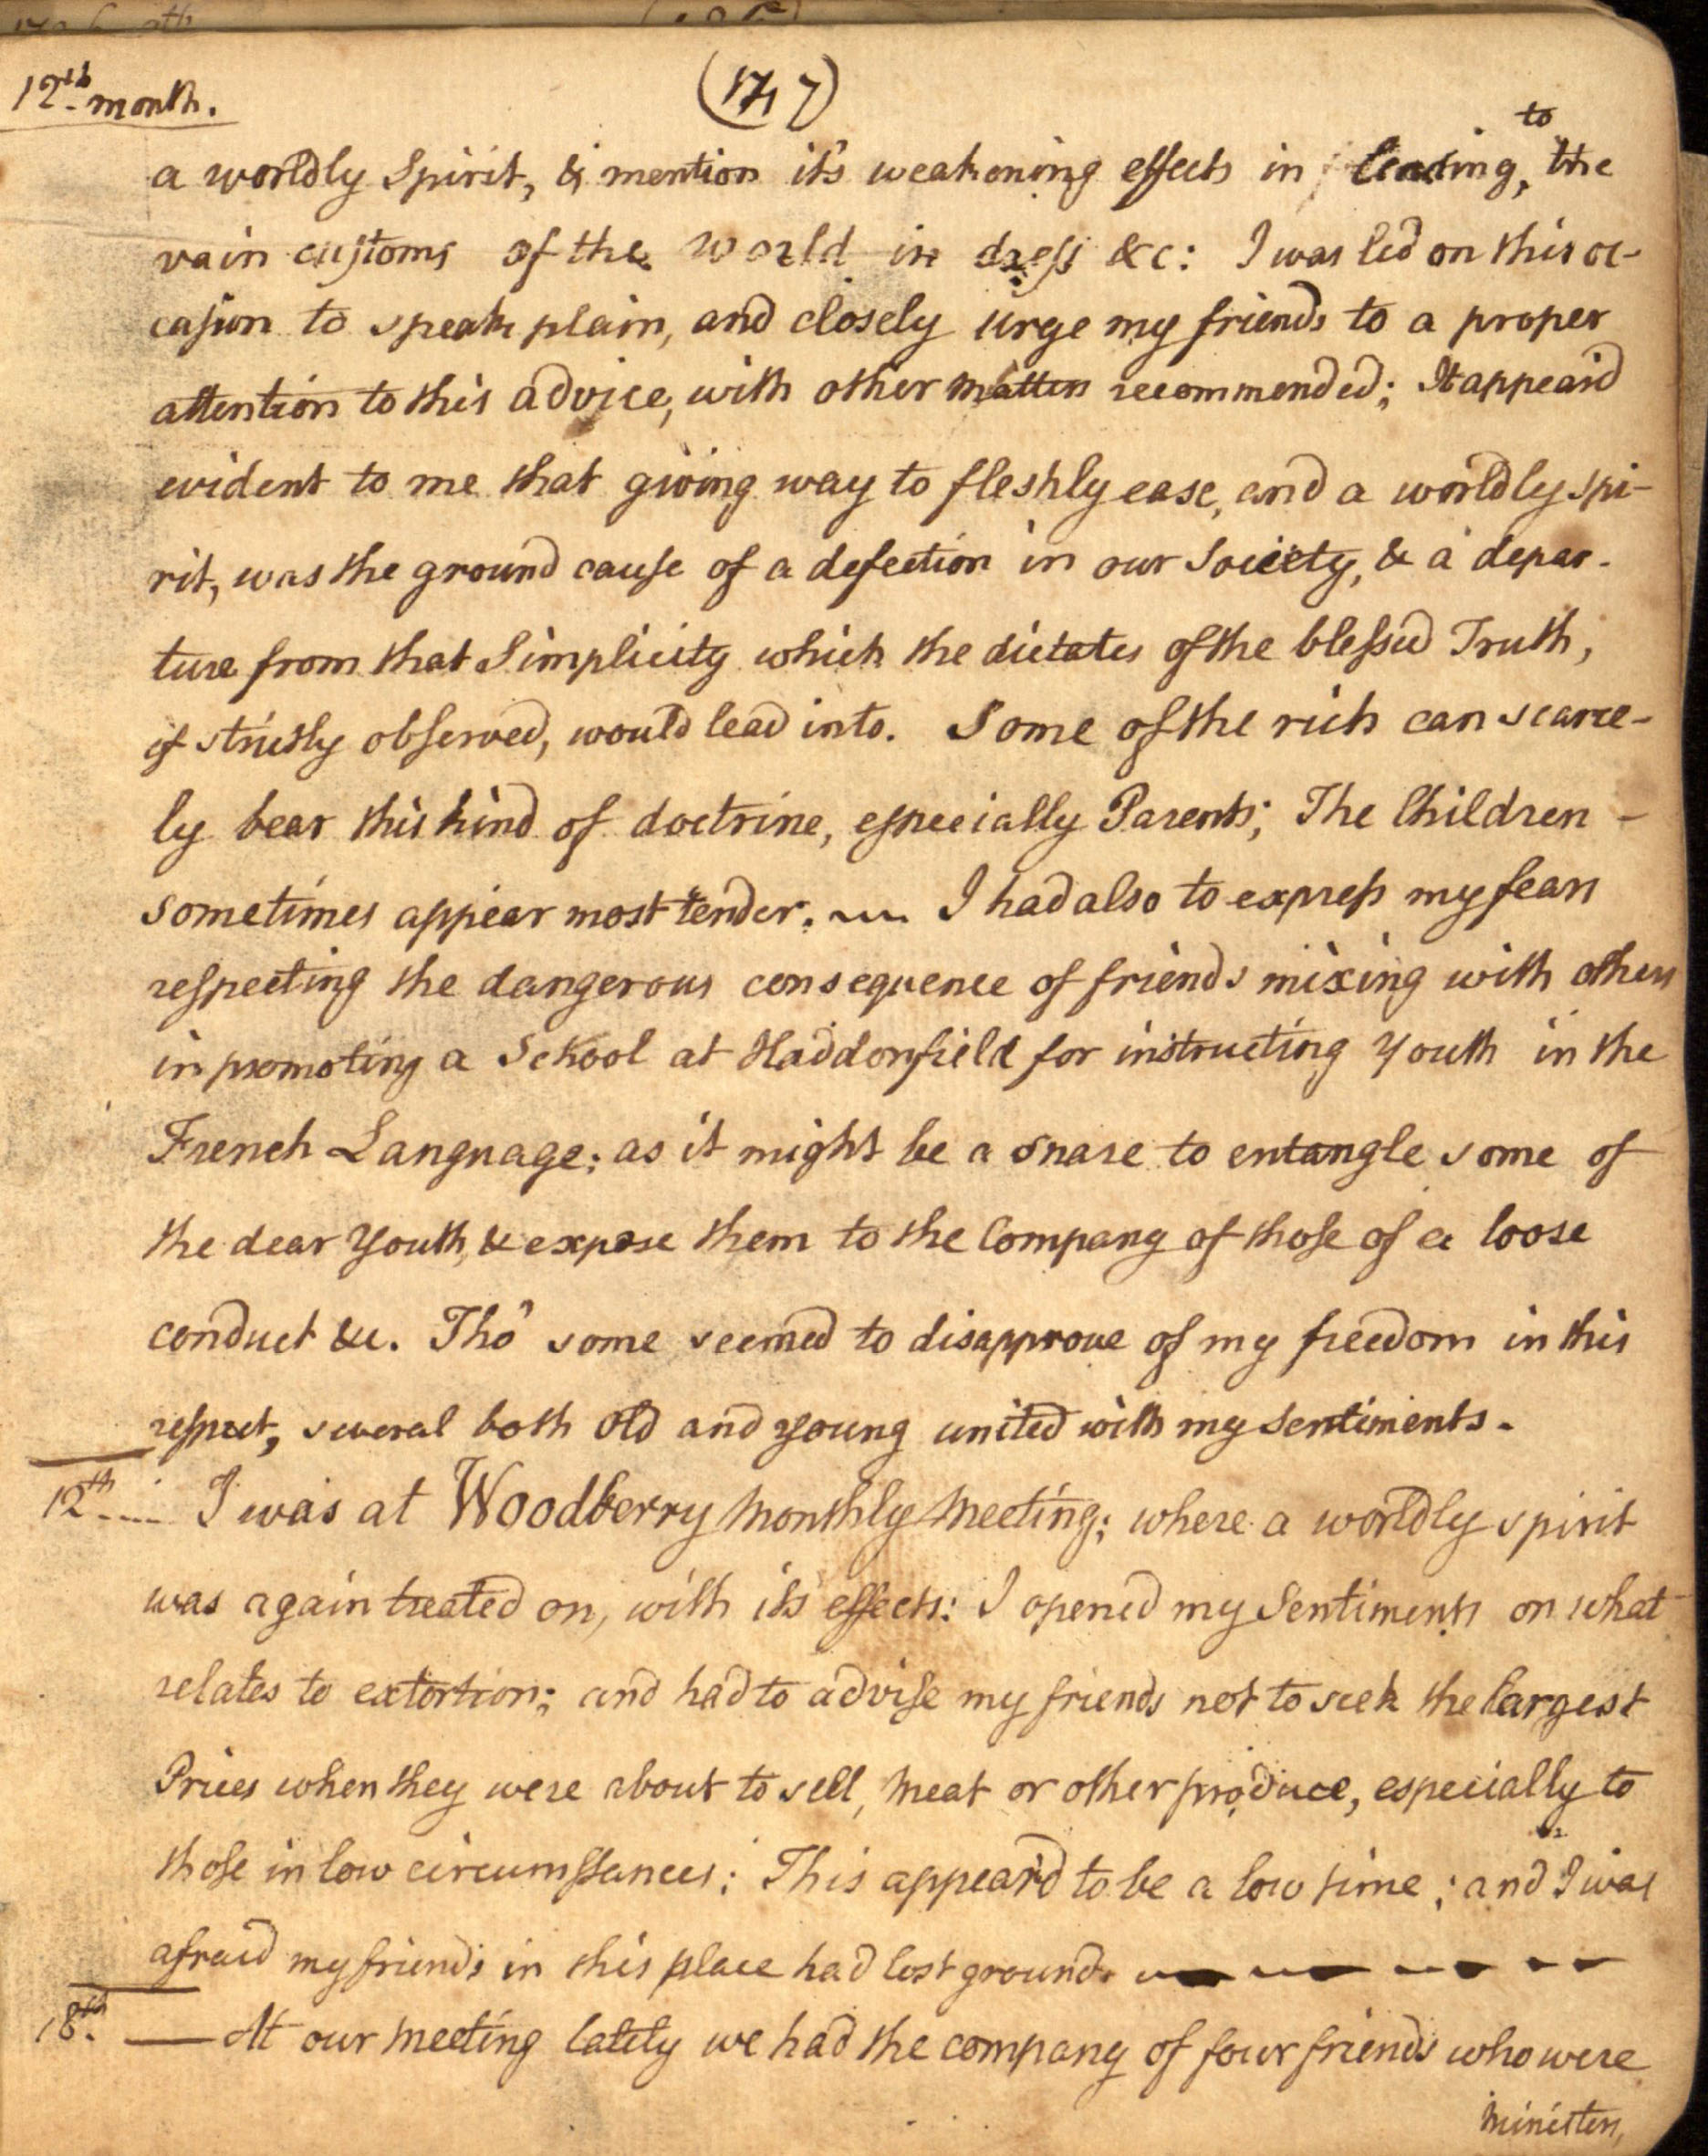 12th month.
(147)
to
a worldly Spirit, & mention it's weakening effects in leading, the
vain customs of the World in dress &c: I was led on this oc-
casion to speak plain, and closely urge my friends to a proper
attention to this advice, with other matters recommended; It appear'd
evident to me that giving way to fleshly ease, and a worldly spi-
rit, was the ground cause of a defection in our Society, & a depar-
ture from that Simplicity which the dictates of the blessed Truth,
if strictly observed, would lead into. Some of the rich can scarce-
ly bear this kind of doctrine, especially Parents; The Children -
sometimes appear most tender. I had also to express my fears
respecting the dangerous consequence of friends mixing with others
in promoting a School at Haddonfield for instructing Youth in the
French Language; as it might be a snare to entangle some of
the dear Youth, & expose them to the Company of those of a loose
conduct &c. Tho' some seemed to disapprove of my freedom in this
respect, several both old and young united with my sentiments.
12th I was at Woodberry Monthly Meeting; where a worldly spirit
was again treated on, with its effects: I opened my Sentiments on what
relates to extortion; and had to advise my friends not to seek the largest
Prices when they were about to sell, meat or other produce, especially to
those in low circumstances; This appear'd to be a low time; and I was
afraid my friends in this place had lost ground.
18th. — At our meeting lately we had the company of four friends who were
Ministers,